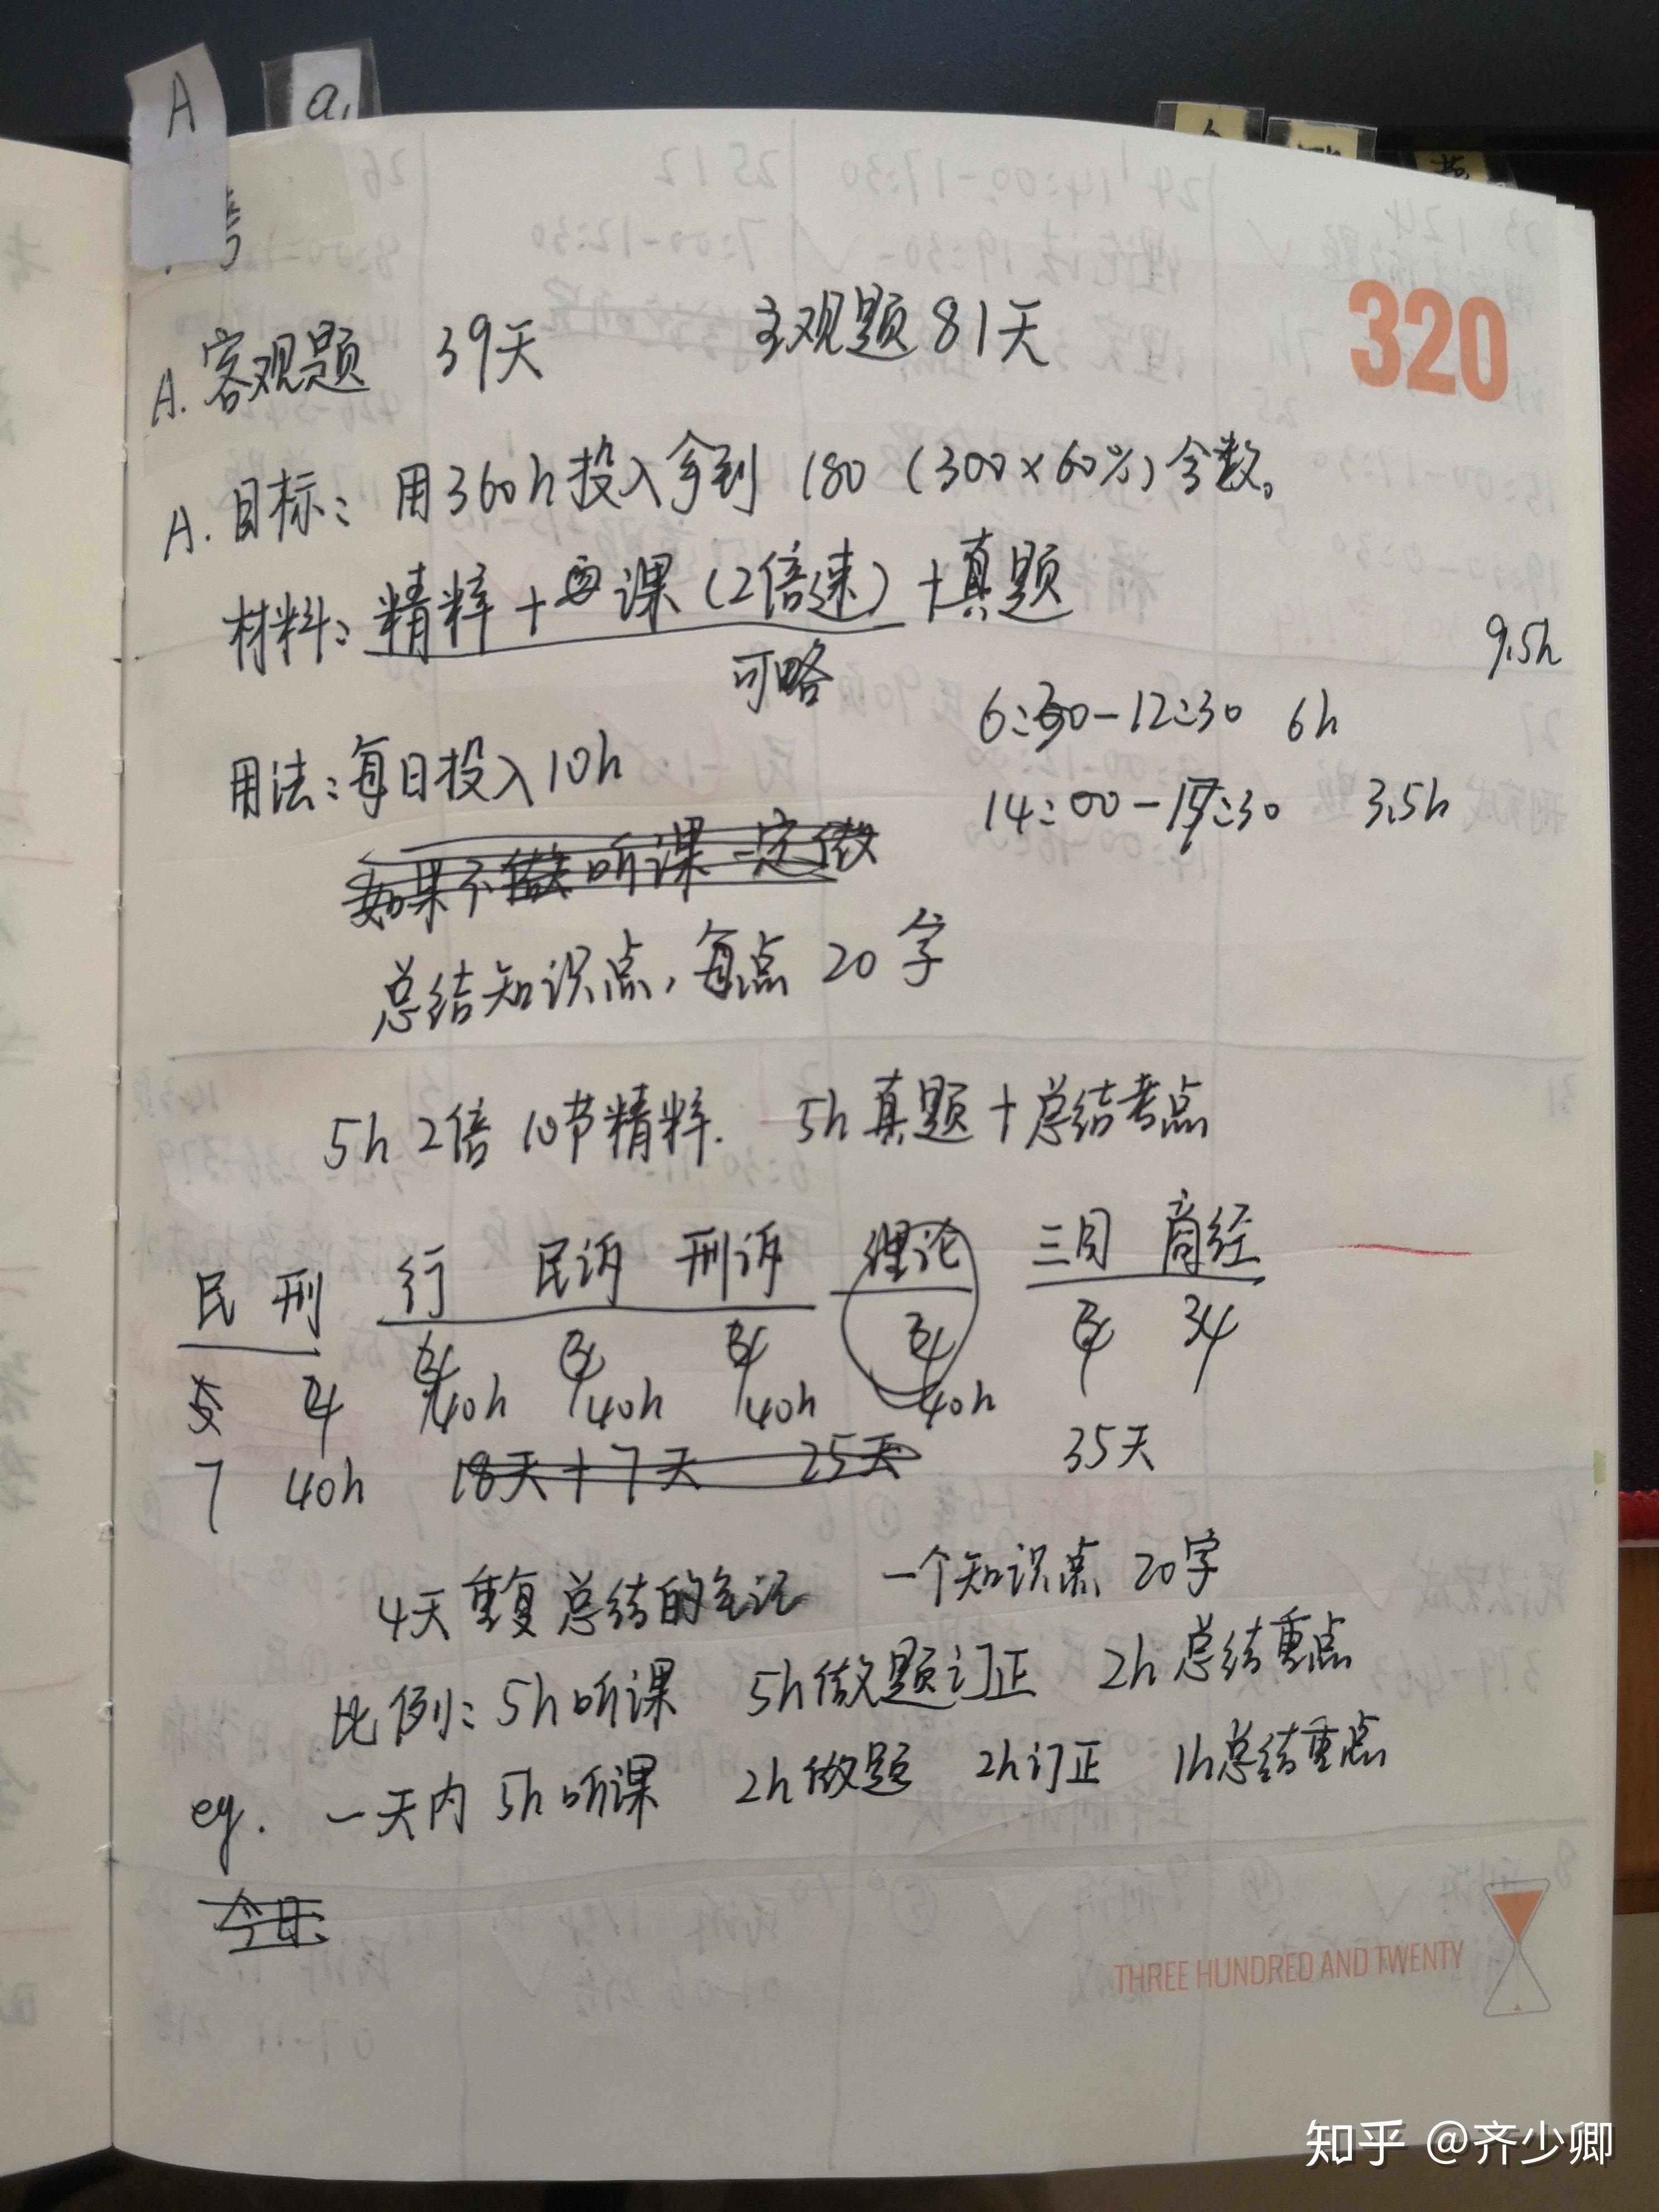 A
a,
320
A. 客观题 39天 主观题81天
A. 目标: 用360h投入拿到 180 (300×60%)分数。
材料: 精粹+ 课(2倍速)+真题
可略
9.5h
6:30-12:30 6h
用法:每日投入10h
14:00-17:30 3.5h
如果不做听课一定做
总结知识点,每点 20字
5h 2倍 10节精粹. 5h真题+总结考点
民 刑 行 民诉 刑诉 理论 三国 商经
5 4 4 4 4 4 4 34
40h 40h 40h 40h
7 40h 18天+7天 25天 35天
4天重复总结的笔记 一个知识点 20字
比例: 5h听课 5h做题订正 2h总结重点
eg. 一天内 5h听课 2h做题 2h订正 1h总结重点
今日:
THREE HUNDRED AND TWENTY
知乎 @齐少卿